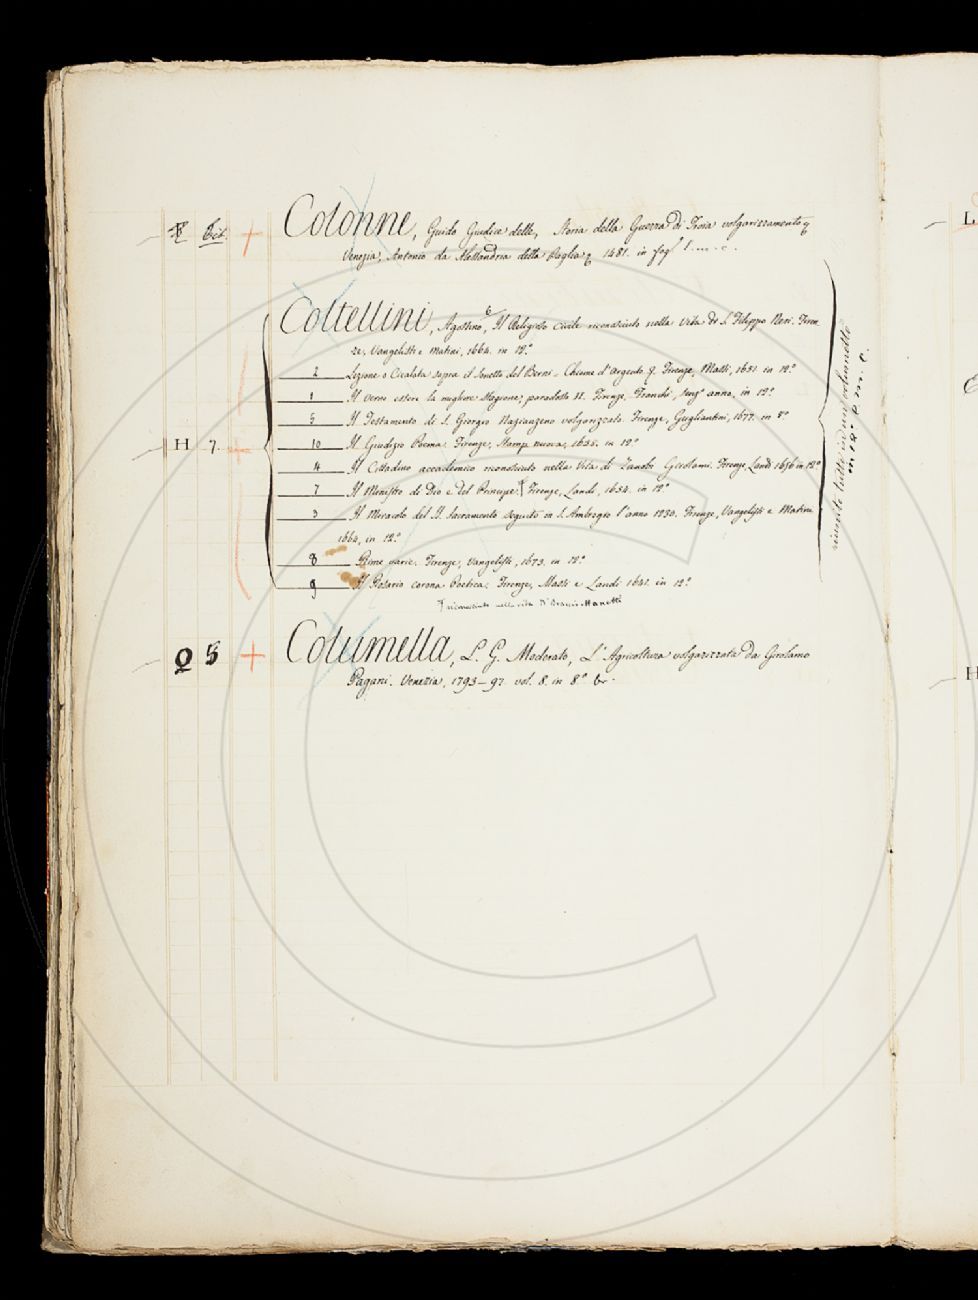 Colonne, Guido Giudice delle, Storia della Guerra di Troia volgarizzamento
Venezia, Antonio da Alessandria della Paglia 1481. in fogl. l. m. c.
6
Coltellini, Agostino, Il Religioso Civile riconosciuto nella Vita di S. Filippo Neri. Firen
ze, Vangelisti e Matini, 1664. in 12.º
2 Lezione o Cicalata sopra il Sonetto del Berni - Chiome d'argento &. Firenze, Massi, 1651. in 12.º
1 Il verno essere la migliore Stagione, paradosso II. Firenze, Franchi, senz' anno, in 12.º
5 Il Testamento di S. Giorgio Nazianzeno volgarizzato. Firenze, Gugliantini, 1677. in 8.º
H 7. 10 Il Giudizio Poema. Firenze, Stamp. nuova, 1655. in 12.º
4 Il Cittadino accademico riconosciuto nella Vita di Zanobi Girolami. Firenze, Landi 1656 in 12.º
7 Il Ministro di Dio e del Principe. Firenze, Landi, 1654. in 12.º
3 Il Miracolo del SS. Sacramento seguito in S. Ambrogio l'anno 1230. Firenze, Vangelisti e Matini
1664, in 12.º
8 Rime varie. Firenze, Vangelisti, 1673. in 12.º
9 Il Rosario corona Poetica. Firenze, Massi e Landi. 1641. in 12.º
riconosciuto nella vita D'Orazio Manetti
riunito tutto in un volumetto
in 12.º l. m. c.
Q 5 + Columella, L. G. Moderato, L'Agricoltura volgarizzata da Girolamo
Pagani. Venezia, 1793-97. vol. 8. in 8.º br.
L
H